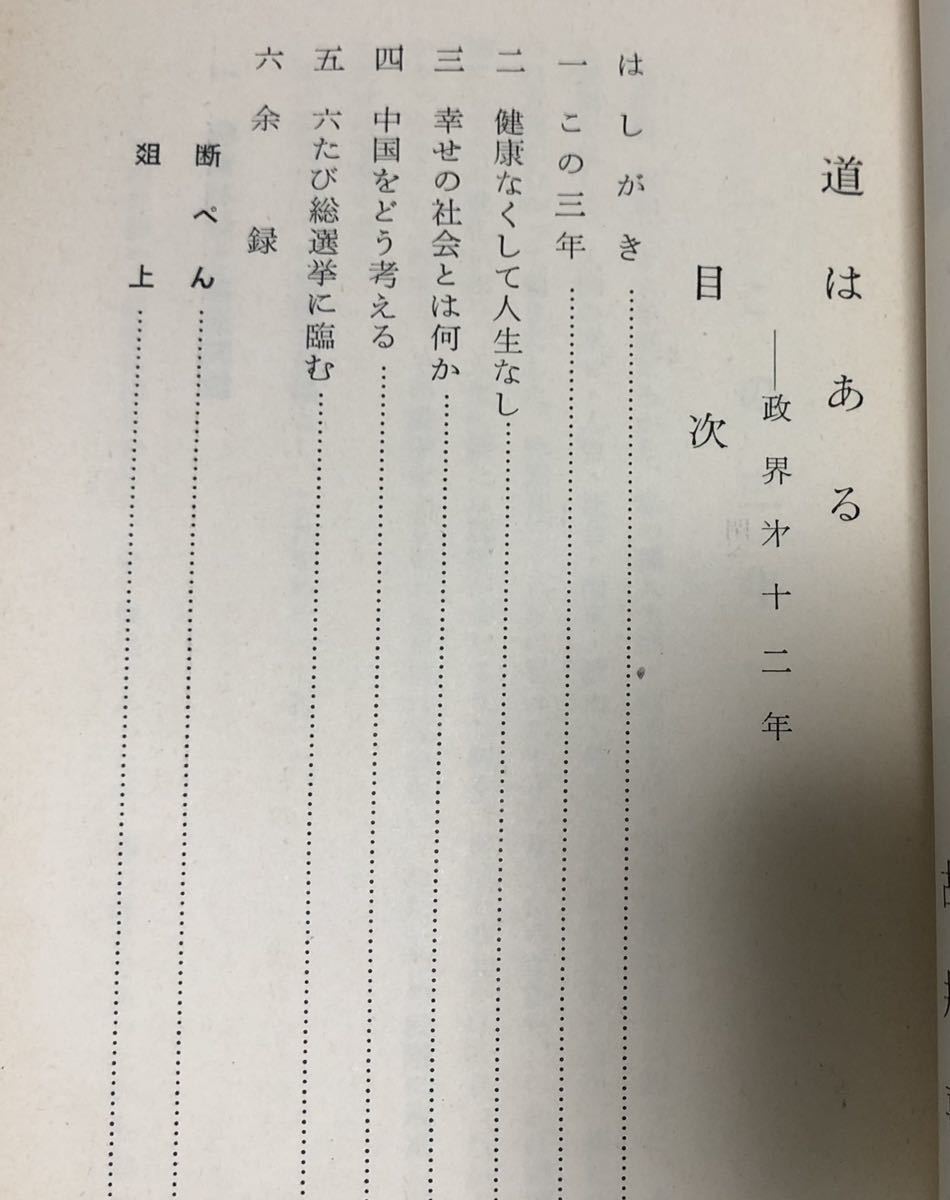 道はある
――政界才十二年
目次
はしがき……………………………
一 この三年……………………………
二 健康なくして人生なし……………………………
三 幸せの社会とは何か……………………………
四 中国をどう考える……………………………
五 六たび総選挙に臨む……………………………
六 余録
断ぺん……………………………
爼上……………………………